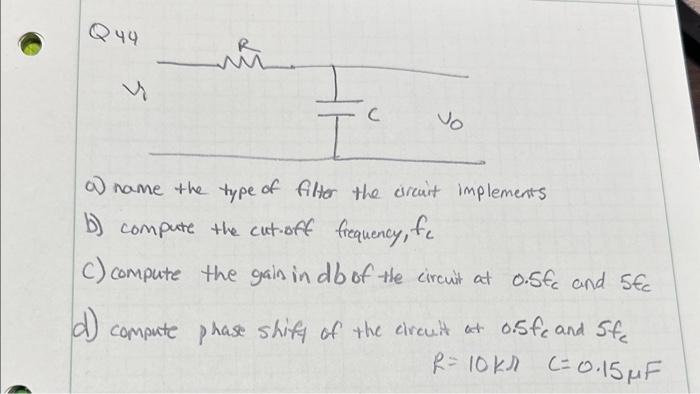 Q44
R
Vi
C
Vo
a) name the type of filter the circuit implements
b) compute the cut-off frequency, fc
c) compute the gain in db of the circuit at 0.5fc and 5fc
d) compute phase shift of the circuit at 0.5fc and 5fc
R = 10KΩ C = 0.15μF